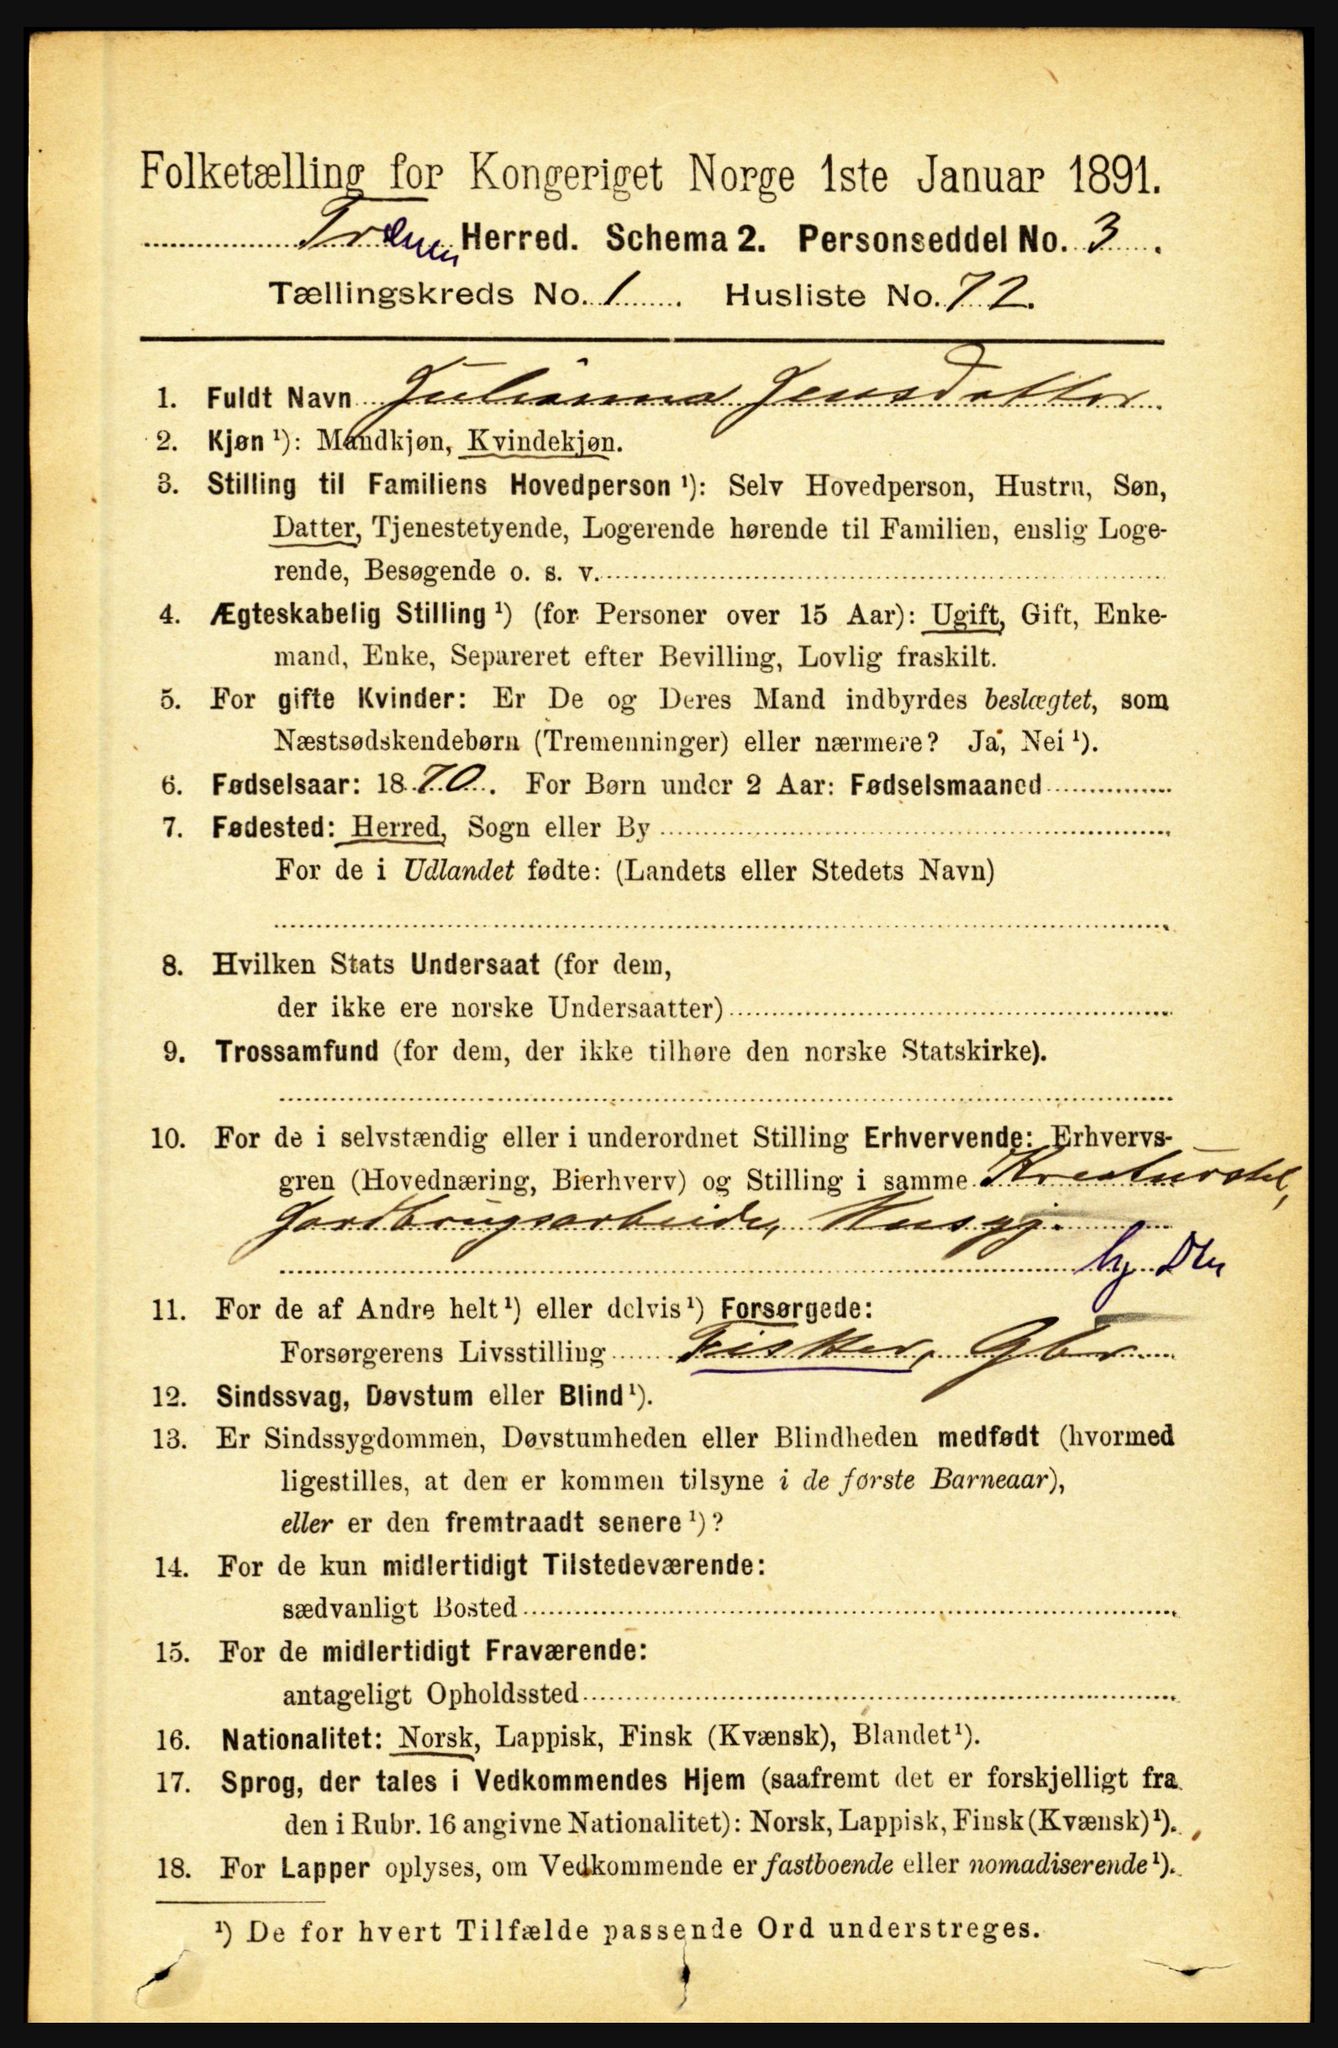 Folketælling for Kongeriget Norge 1ste Januar 1891.
Træna Herred. Schema 2. Personseddel No. 3.
Tællingskreds No. 1. Husliste No. 72.
1. Fuldt Navn Julianna Jensdatter.
2. Kjøn ¹): Mandkjøn, Kvindekjøn.
3. Stilling til Familiens Hovedperson ¹): Selv Hovedperson, Hustru, Søn,
Datter, Tjenestetyende, Logerende hørende til Familien, enslig Loge-
rende, Besøgende o. s. v.
4. Ægteskabelig Stilling ¹) (for Personer over 15 Aar): Ugift, Gift, Enke-
mand, Enke, Separeret efter Bevilling, Lovlig fraskilt.
5. For gifte Kvinder: Er De og Deres Mand indbyrdes beslægtet, som
Næstsødskendebørn (Tremenninger) eller nærmere? Ja, Nei ¹).
6. Fødselsaar: 1870. For Børn under 2 Aar: Fødselsmaaned
7. Fødested: Herred, Sogn eller By
For de i Udlandet fødte: (Landets eller Stedets Navn)
8. Hvilken Stats Undersaat (for dem,
der ikke ere norske Undersaatter)
9. Trossamfund (for dem, der ikke tilhøre den norske Statskirke).
10. For de i selvstændig eller i underordnet Stilling Erhvervende: Erhvervs-
gren (Hovednæring, Bierhverv) og Stilling i samme Kreaturstel,
Jordbrugsarbeide, Husgj.
11. For de af Andre helt ¹) eller delvis ¹) Forsørgede:
Forsørgerens Livsstilling Fisker, Gbr
12. Sindssvag, Døvstum eller Blind ¹).
13. Er Sindssygdommen, Døvstumheden eller Blindheden medfødt (hvormed
ligestilles, at den er kommen tilsyne i de første Barneaar),
eller er den fremtraadt senere ¹)?
14. For de kun midlertidigt Tilstedeværende:
sædvanligt Bosted
15. For de midlertidigt Fraværende:
antageligt Opholdssted
16. Nationalitet: Norsk, Lappisk, Finsk (Kvænsk), Blandet ¹).
17. Sprog, der tales i Vedkommendes Hjem (saafremt det er forskjelligt fra
den i Rubr. 16 angivne Nationalitet): Norsk, Lappisk, Finsk (Kvænsk) ¹).
18. For Lapper oplyses, om Vedkommende er fastboende eller nomadiserende ¹).
¹) De for hvert Tilfælde passende Ord understreges.